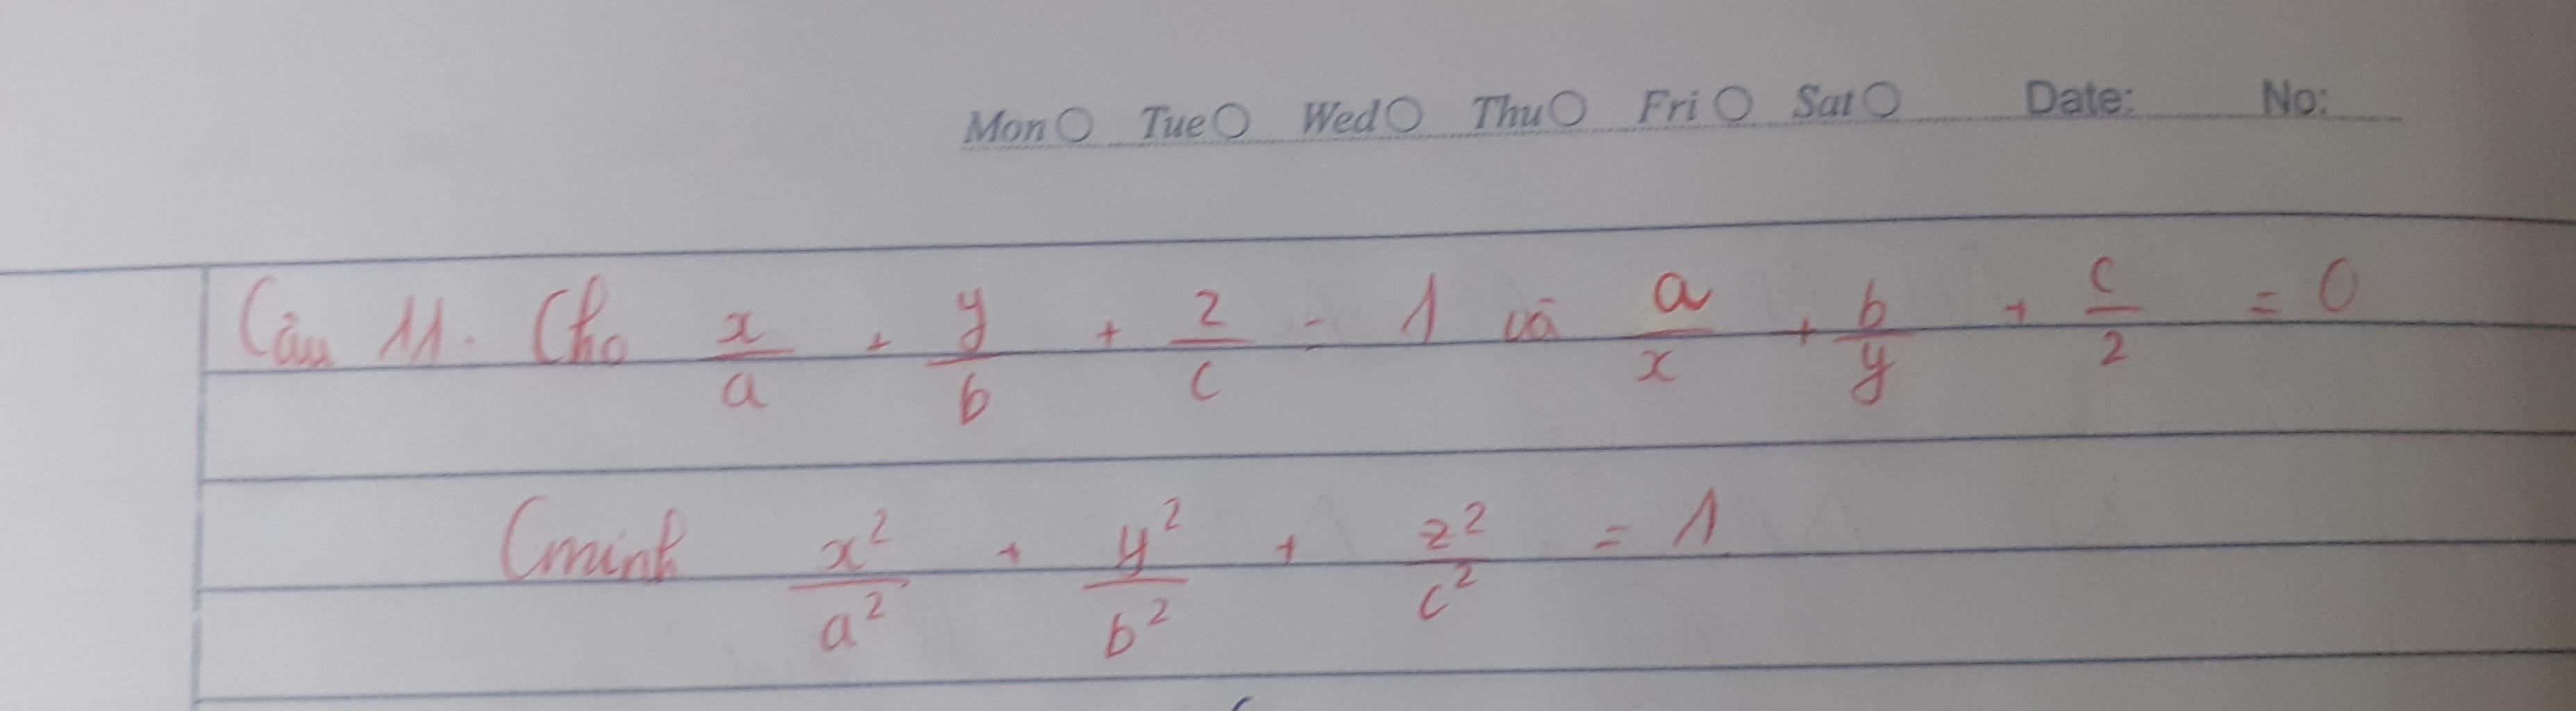 Mon Tue Wed Thu Fri Sat Date: No:
Câu 11. Cho x/a + y/b + z/c = 1 và a/x + b/y + c/z = 0
Cminh x²/a² + y²/b² + z²/c² = 1